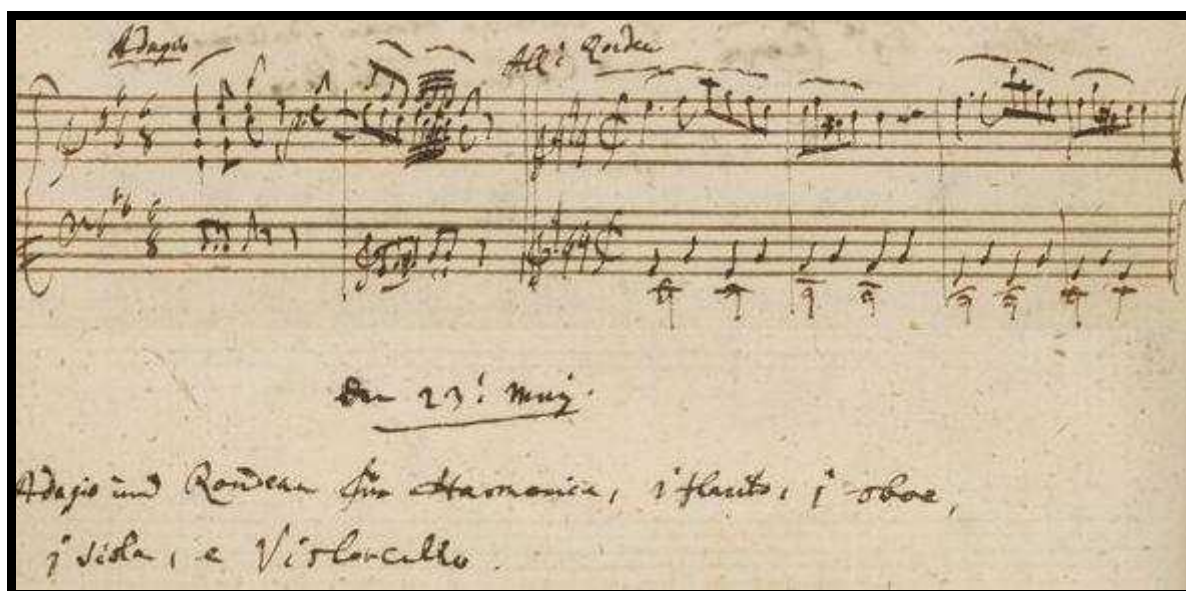 Adagio
All:º Rondeau
Den 23:t May.
Adagio und Rondeau für Harmonica, 1 flauto, 1 oboe,
1 viola, e Violoncello.